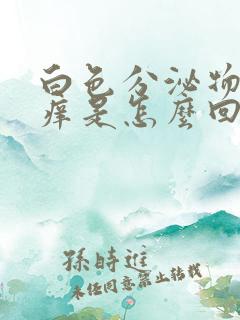 白色分泌物
痒是怎麼回
孫時進
未任同意禁止转载